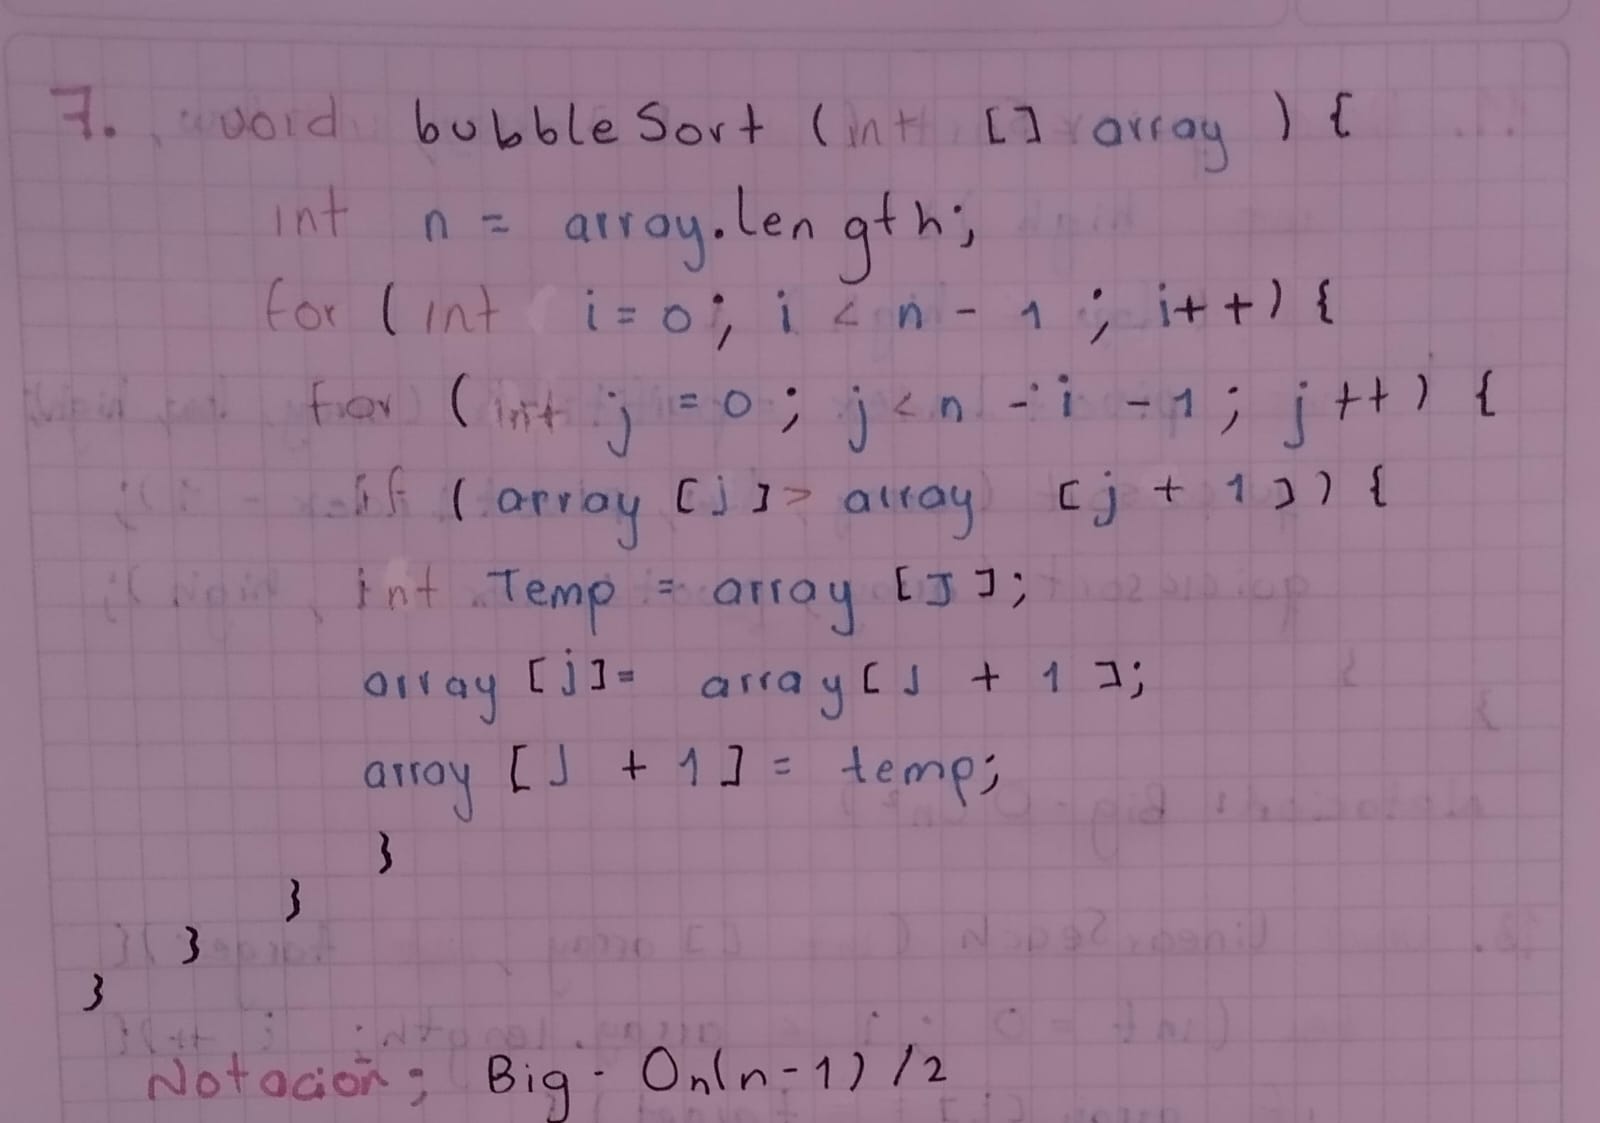 7. void bubbleSort (int [] array ) {
int n = array.length;
for (int i=0; i < n - 1 ; i++) {
for (int j =0; j<n -i -1; j++) {
if (array [j]> array [j + 1]) {
int Temp = array [J];
array [j]= array[J + 1];
array [J + 1] = temp;
}
}
}
}
Notación; Big - On(n-1)/2